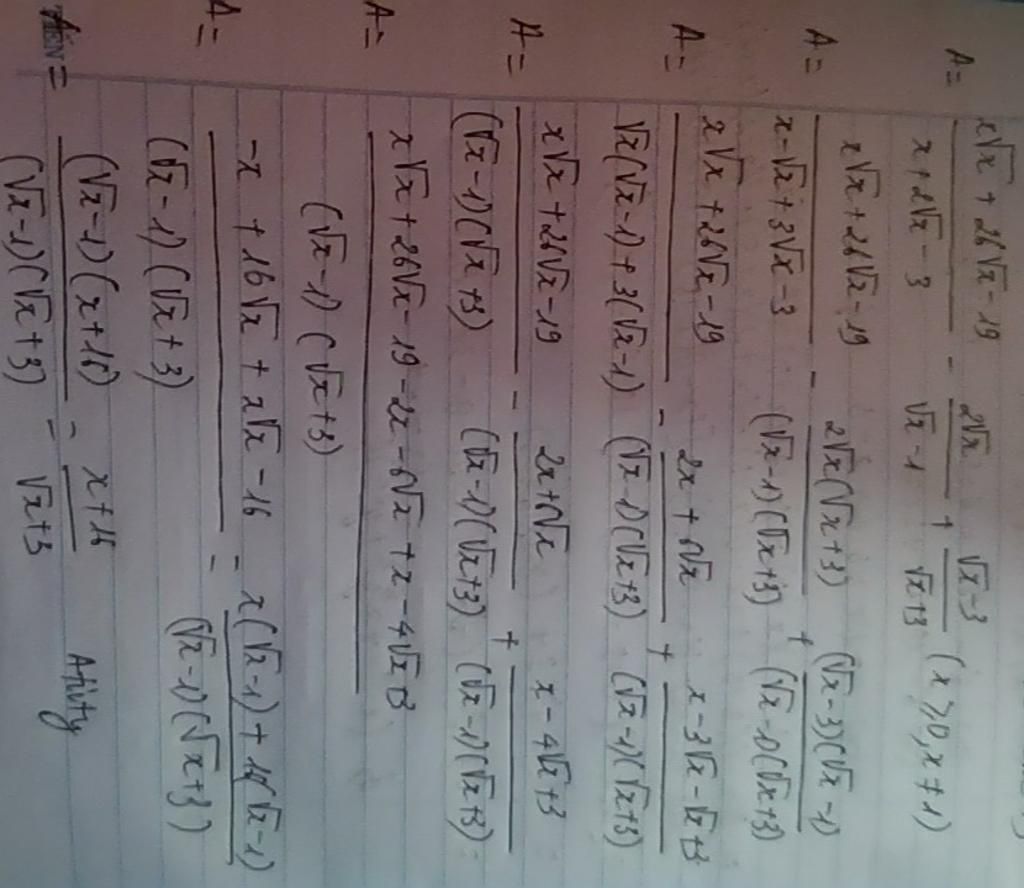 A = (x√x + 26√x - 19)/(x + 2√x - 3) - 2√x/(√x - 1) + (√x - 3)/(√x + 3) (x ⩾ 0, x ≠ 1)
A = (x√x + 26√x - 19)/(x - √x + 3√x - 3) - 2√x(√x + 3)/((√x - 1)(√x + 3)) + (√x - 3)(√x - 1)/((√x - 1)(√x + 3))
A = (x√x + 26√x - 19)/(√x(√x - 1) + 3(√x - 1)) - (2x + 6√x)/((√x - 1)(√x + 3)) + (x - 3√x - √x + 3)/((√x - 1)(√x + 3))
A = (x√x + 26√x - 19)/((√x - 1)(√x + 3)) - (2x + 6√x)/((√x - 1)(√x + 3)) + (x - 4√x + 3)/((√x - 1)(√x + 3))
A = (x√x + 26√x - 19 - 2x - 6√x + x - 4√x + 3)/((√x - 1)(√x + 3))
A = (-x + 16√x + x√x - 16)/((√x - 1)(√x + 3)) = (x(√x - 1) + 16(√x - 1))/((√x - 1)(√x + 3))
A = ((√x - 1)(x + 16))/((√x - 1)(√x + 3)) = (x + 16)/(√x + 3)